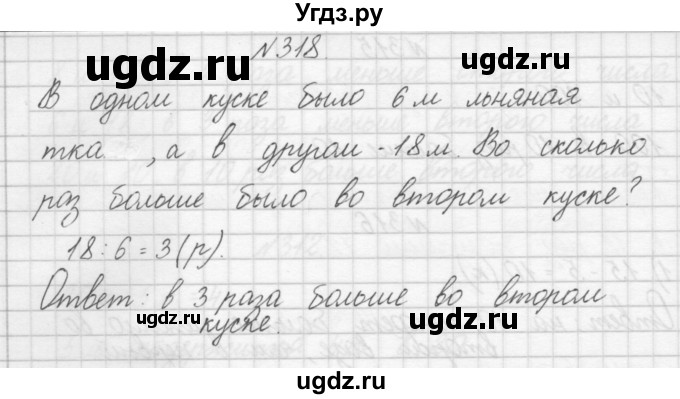 Угдз.ру
№318.
ugdz.ru ugdz.ru
В одном куске было 6 м льняная
тка , а в другом - 18 м. Во сколько
раз больше было во втором куске?
18 : 6 = 3 (р).
Ответ: в 3 раза больше во втором
ugdz.ru куске. ugdz.ru
ugdz.ru